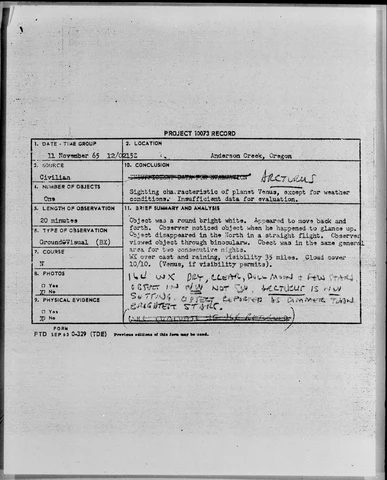 PROJECT 10073 RECORD
1. DATE - TIME GROUP
11 November 65 12/0215Z
2. LOCATION
Anderson Creek, Oregon
3. SOURCE
Civilian
10. CONCLUSION
ARCTURUS
Sighting characteristic of planet Venus, except for weather
conditions. Insufficient data for evaluation.
4. NUMBER OF OBJECTS
One
5. LENGTH OF OBSERVATION
20 minutes
11. BRIEF SUMMARY AND ANALYSIS
Object was a round bright white. Appeared to move back and
forth. Observer noticed object when he happened to glance up.
Object disappeared in the North in a straight flight. Observer
viewed object through binoculars. Obect was in the same general
area for two consecutive nights.
WX over cast and raining, visibility 35 miles. Cloud cover
10/10. (Venus, if visibility permits).
6. TYPE OF OBSERVATION
Ground&Visual (BX)
7. COURSE
N
8. PHOTOS
□ Yes
No
9. PHYSICAL EVIDENCE
□ Yes
No
WX DRY, CLEAR, MOON & FEW STARS
OBJECT IN NW NOT SW, ARCTURUS IS NW
SETTING. OBJECT REPORTED AS DIMMER THAN
BRIGHTEST STARS.
FORM
FTD SEP 63 0-329 (TDE) Previous editions of this form may be used.